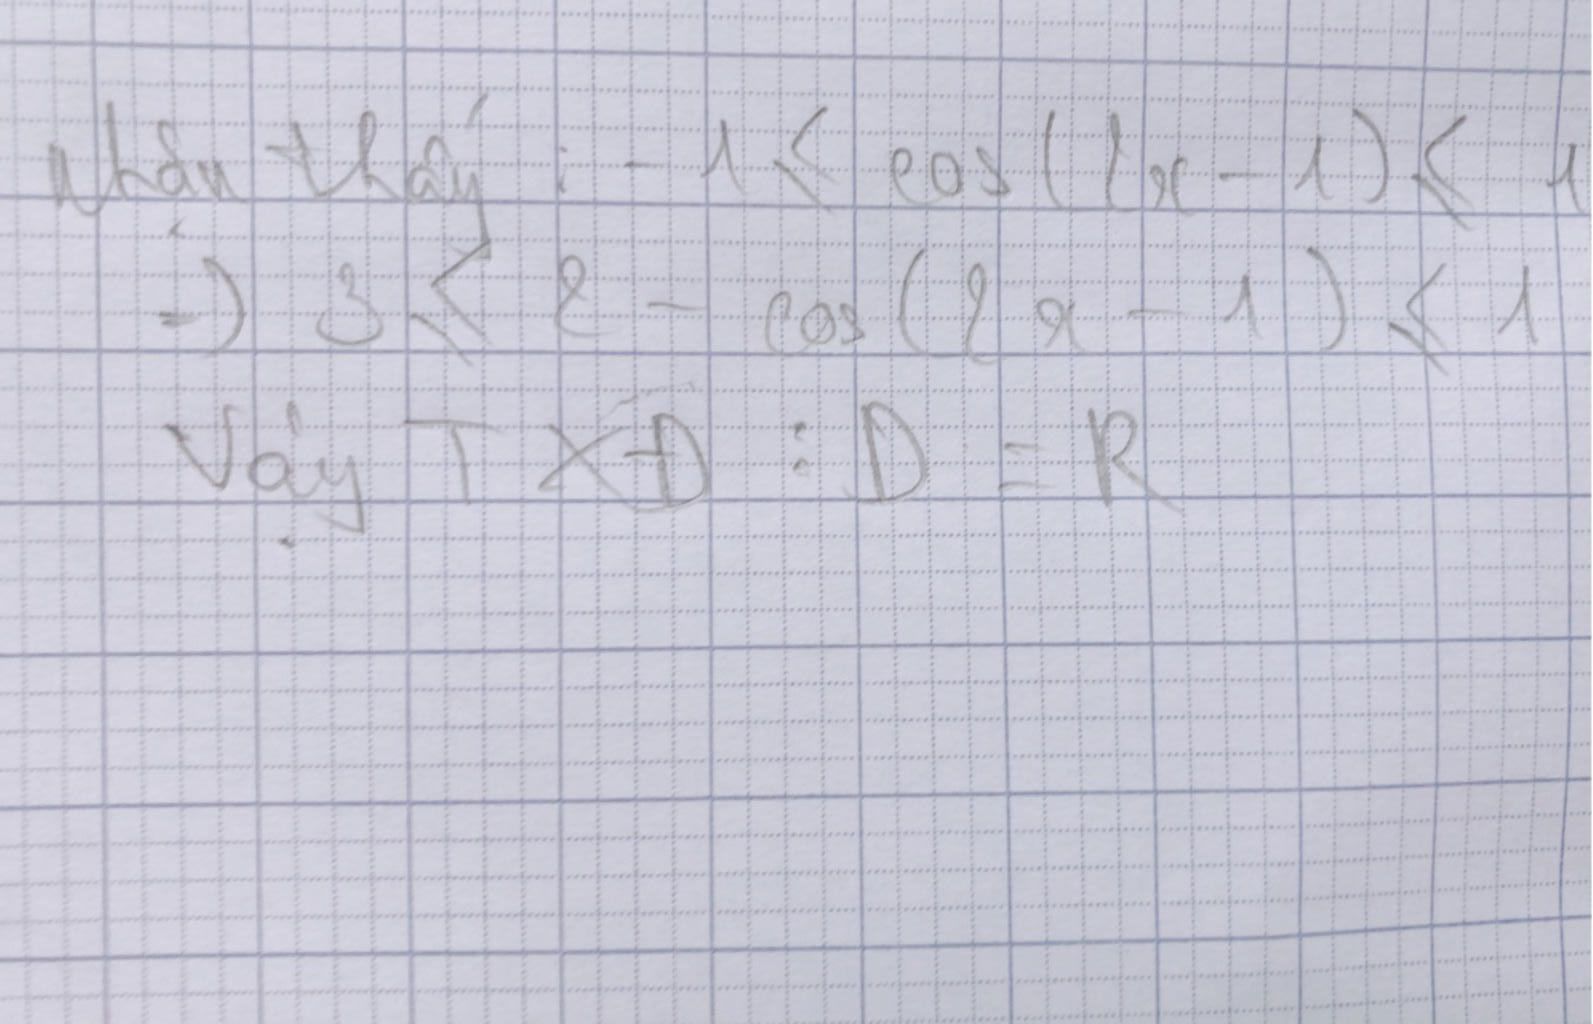 Nhận thấy : -1 ⩽ cos(2x - 1) ⩽ 1
=) 3 ⩽ 2 - cos(2x - 1) ⩽ 1
Vậy TXĐ : D = R